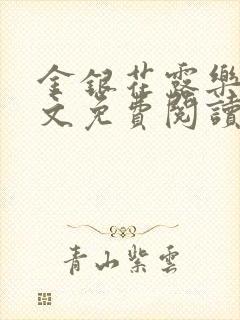 金銀花露樂
文免費閱讀
青山紫雲